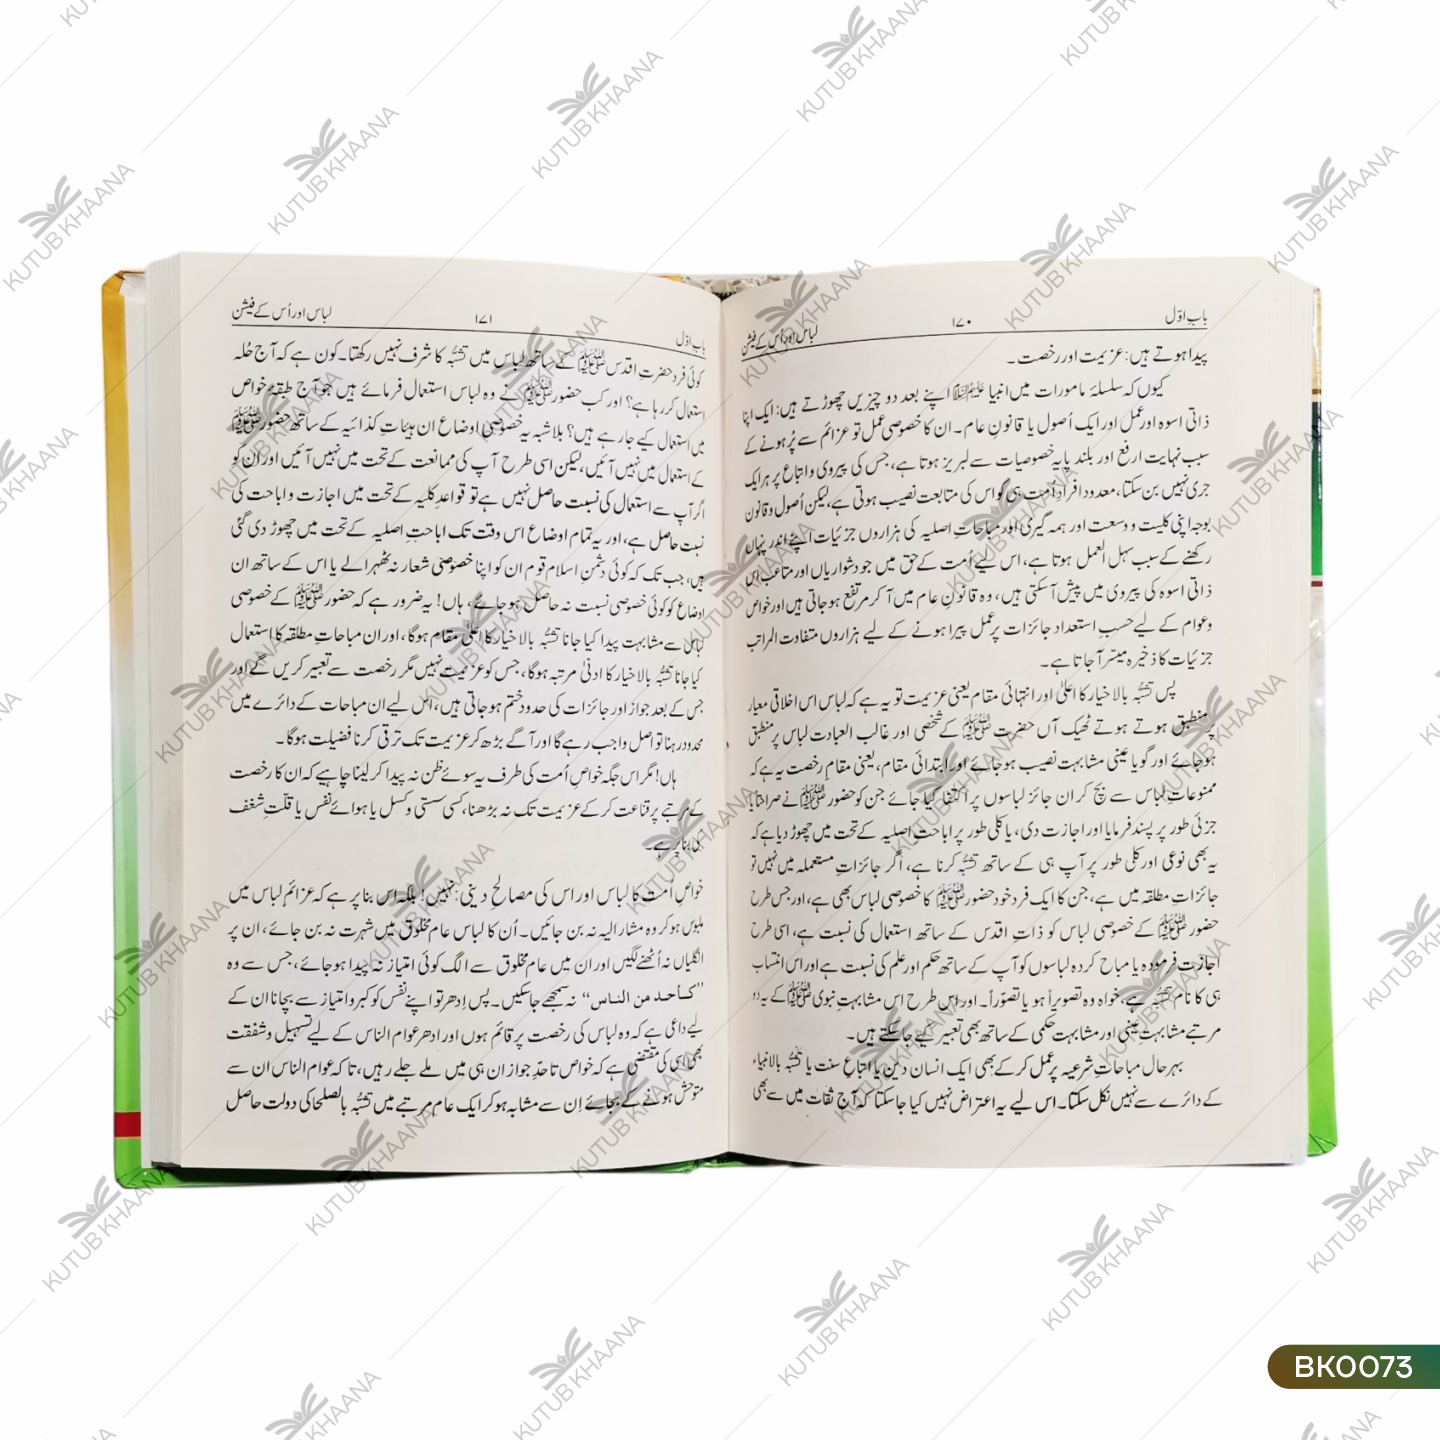 باب اوّل ۱۷۰ لباس اور اُس کے فیشن
پیدا ہوتے ہیں: عزیمت اور رخصت۔
کیوں کہ سلسلۂ مامورات میں انبیا علیہم السلام اپنے بعد دو چیزیں چھوڑتے ہیں: ایک اپنا
ذاتی اسوہ اور عمل اور ایک اُصول یا قانونِ عام۔ ان کا خصوصی عمل تو عزائم سے پُر ہونے کے
سبب نہایت ارفع اور بلند پایہ خصوصیات سے لبریز ہوتا ہے، جس کی پیروی و اتباع پر ہر ایک
جری نہیں بن سکتا، معدود افراد اُمت ہی کو اس کی متابعت نصیب ہوتی ہے، لیکن اُصول و قانون
بوجہ اپنی کلیت و وسعت اور ہمہ گیری اور مباحاتِ اصلیہ کی ہزاروں جزئیات اپنے اندر پنہاں
رکھنے کے سبب سہل العمل ہوتا ہے، اس لیے اُمت کے حق میں جو دشواریاں اور متاعب اس
ذاتی اسوہ کی پیروی میں پیش آسکتی ہیں، وہ قانونِ عام میں آکر مرتفع ہوجاتی ہیں اور خواص
وعوام کے لیے حسبِ استعداد جائزات پر عمل پیرا ہونے کے لیے ہزاروں متفاوت المراتب
جزئیات کا ذخیرہ میسّر آجاتا ہے۔
پس تشبّہ بالاخیار کا اعلیٰ اور انتہائی مقام یعنی عزیمت تو یہ ہے کہ لباس اس اخلاقی معیار
پر منطبق ہوتے ہوتے ٹھیک آں حضرت ﷺ کے شخصی اور غالب العبادت لباس پر منطبق
ہوجائے اور گویا عینی مشابہت نصیب ہوجائے اور ابتدائی مقام، یعنی مقامِ رخصت یہ ہے کہ
ممنوعاتِ لباس سے بچ کر ان جائز لباسوں پر اکتفا کیا جائے جن کو حضور ﷺ نے صراحتاً یا
جزئی طور پر پسند فرمایا اور اجازت دی، یا کلی طور پر اباحتِ اصلیہ کے تحت میں چھوڑ دیا ہے کہ
یہ بھی نوعی اور کلی طور پر آپ ہی کے ساتھ تشبّہ کرنا ہے، اگر جائزاتِ مستعملہ میں نہیں تو
جائزاتِ مطلقہ میں ہے، جن کا ایک فرد خود حضور ﷺ کا خصوصی لباس بھی ہے، اور جس طرح
حضور ﷺ کے خصوصی لباس کو ذاتِ اقدس کے ساتھ استعمال کی نسبت ہے، اسی طرح
اجازت فرمودہ یا مباح کردہ لباسوں کو آپ کے ساتھ حکم اور علم کی نسبت ہے اور اس انتساب
ہی کا نام تشبّہ ہے، خواہ وہ تصویراً ہو یا تصوّراً۔ اور اس طرح اس مشابہتِ نبوی ﷺ کے یہ دو
مرتبے مشابہتِ عینی اور مشابہتِ حکمی کے ساتھ بھی تعبیر کیے جاسکتے ہیں۔
بہرحال مباحاتِ شرعیہ پر عمل کرکے بھی ایک انسان دین یا اتباعِ سنت یا تشبّہ بالانبیاء
کے دائرے سے نہیں نکل سکتا۔ اس لیے یہ اعتراض نہیں کیا جاسکتا کہ آج ثقات میں سے بھی
باب اوّل ۱۷۱ لباس اور اُس کے فیشن
کوئی فرد حضرتِ اقدس ﷺ کے ساتھ لباس میں تشبّہ کا شرف نہیں رکھتا۔ کون ہے کہ آج حُلّہ
استعمال کر رہا ہے؟ اور کب حضور ﷺ نے وہ لباس استعمال فرمائے ہیں جو آج طبقۂ خواص
میں استعمال کیے جارہے ہیں؟ بلاشبہ یہ خصوصی اوضاع ان ہیئاتِ کذائیہ کے ساتھ حضور ﷺ
کے استعمال میں نہیں آئیں، لیکن اسی طرح آپ کی ممانعت کے تحت میں نہیں آئیں اور ان کو
اگر آپ سے استعمال کی نسبت حاصل نہیں ہے تو قواعدِ کلیہ کے تحت میں اجازت و اباحت کی
نسبت حاصل ہے، اور یہ تمام اوضاع اس وقت تک اباحتِ اصلیہ کے تحت میں چھوڑ دی گئی
ہیں، جب تک کہ کوئی دشمنِ اسلام قوم ان کو اپنا خصوصی شعار نہ ٹھہرالے یا اس کے ساتھ ان
اوضاع کو کوئی خصوصی نسبت نہ حاصل ہوجائے، ہاں! یہ ضرور ہے کہ حضور ﷺ کے خصوصی
لباس سے مشابہت پیدا کیا جانا تشبّہ بالاخیار کا اعلیٰ مقام ہوگا، اور ان مباحاتِ مطلقہ کا استعمال
کیا جانا تشبّہ بالاخیار کا ادنیٰ مرتبہ ہوگا، جس کو عزیمت نہیں مگر رخصت سے تعبیر کریں گے اور
جس کے بعد جواز اور جائزات کی حدود ختم ہوجاتی ہیں، اس لیے ان مباحات کے دائرے میں
محدود رہنا تو اصل واجب رہے گا اور آگے بڑھ کر عزیمت تک ترقی کرنا فضیلت ہوگا۔
ہاں! مگر اس جگہ خواصِ اُمت کی طرف یہ سوئے ظن نہ پیدا کرلینا چاہیے کہ ان کا رخصت
کے مرتبے پر قناعت کرکے عزیمت تک نہ بڑھنا، کسی سستی و کسل یا ہوائے نفس یا قلّتِ شغف
کی بنا پر ہے۔
خواصِ اُمت کا لباس اور اس کی مصالحِ دینی: نہیں! بلکہ اس بنا پر ہے کہ عزائمِ لباس میں
ملبوس ہوکر وہ مشار الیہ نہ بن جائیں۔ اُن کا لباس عام مخلوق میں شہرت نہ بن جائے، ان پر
انگلیاں نہ اُٹھنے لگیں اور ان میں عام مخلوق سے الگ کوئی امتیاز نہ پیدا ہوجائے، جس سے وہ
”كأحد من الناس“ نہ سمجھے جاسکیں۔ پس اِدھر تو اپنے نفس کو کبر و امتیاز سے بچانا ان کے
لیے داعی ہے کہ وہ لباس کی رخصت پر قائم ہوں اور ادھر عوام الناس کے لیے تسہیل و شفقت
بھی اسی کی مقتضی ہے کہ خواص تا حدِ جواز ان ہی میں ملے جلے رہیں، تاکہ عوام الناس ان سے
متوحش ہونے کے بجائے اِن سے مشابہ ہوکر ایک عام مرتبے میں تشبّہ بالصلحا کی دولت حاصل
KUTUB KHAANA
BK0073